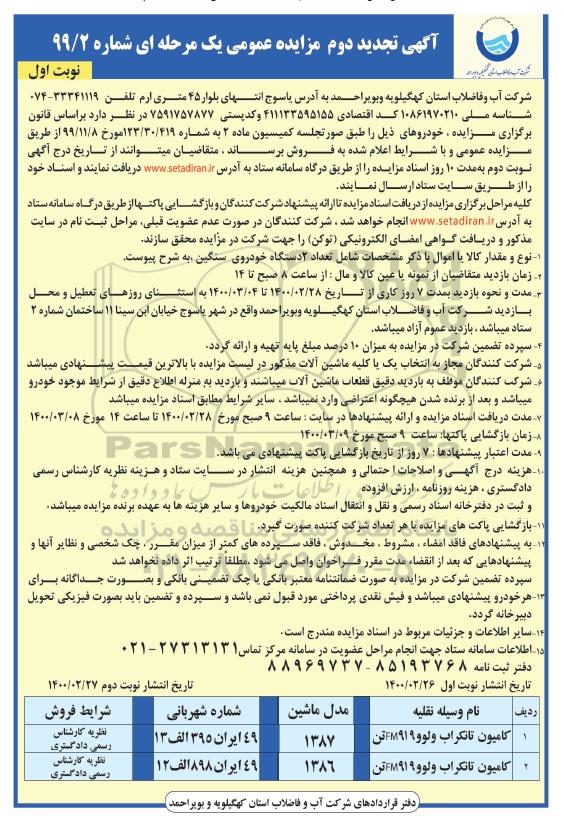 آگهی تجدید دوم مزایده عمومی یک مرحله ای شماره ۹۹/۲
نوبت اول
شرکت آب و فاضلاب استان کهگیلویه و بویراحمد
شرکت آب وفاضلاب استان کهگیلویه وبویراحمد به آدرس یاسوج انتهای بلوار۴۵ متری ارم تلفن ۳۳۳۴۱۱۱۹-۰۷۴
شناسه ملی ۱۰۸۶۱۹۷۰۲۱۰ کد اقتصادی ۴۱۱۱۳۳۵۹۵۱۵۵ وکدپستی ۷۵۹۱۷۵۷۸۷۷ در نظر دارد براساس قانون
برگزاری مزایده ، خودروهای ذیل را طبق صورتجلسه کمیسیون ماده ۲ به شماره ۱۲۳/۳۰/۴۱۹مورخ ۹۹/۱۱/۸ از طریق
مزایده عمومی و با شرایط اعلام شده به فروش برساند ، متقاضیان میتوانند از تاریخ درج آگهی
نوبت دوم به‌مدت ۱۰ روز اسناد مزایده را از طریق درگاه سامانه ستاد به آدرس www.setadiran.ir دریافت نمایند و اسناد خود
را از طریق سایت ستاد ارسال نمایند.
کلیه مراحل برگزاری مزایده از دریافت اسناد مزایده تا ارائه پیشنهاد شرکت کنندگان و بازگشایی پاکتها از طریق درگاه سامانه ستاد
به آدرس www.setadiran.ir انجام خواهد شد ، شرکت کنندگان در صورت عدم عضویت قبلی، مراحل ثبت نام در سایت
مذکور و دریافت گواهی امضای الکترونیکی (توکن) را جهت شرکت در مزایده محقق سازند.
۱-نوع و مقدار کالا یا اموال با ذکر مشخصات شامل تعداد ۲دستگاه خودروی سنگین ،به شرح پیوست.
۲- زمان بازدید متقاضیان از نمونه یا عین کالا و مال : از ساعت ۸ صبح تا ۱۴
۳- مدت و نحوه بازدید بمدت ۷ روز کاری از تاریخ ۱۴۰۰/۰۲/۲۸ تا ۱۴۰۰/۰۳/۰۴ به استثنای روزهای تعطیل و محل
بازدید شرکت آب و فاضلاب استان کهگیلویه وبویراحمد واقع در شهر یاسوج خیابان ابن سینا ۱۱ ساختمان شماره ۲
ستاد میباشد ، بازدید عموم آزاد میباشد.
۴- سپرده تضمین شرکت در مزایده به میزان ۱۰ درصد مبلغ پایه تهیه و ارائه گردد.
۵- شرکت کنندگان مجاز به انتخاب یک یا کلیه ماشین آلات مذکور در لیست مزایده با بالاترین قیمت پیشنهادی میباشد
۶- شرکت کنندگان موظف به بازدید دقیق قطعات ماشین آلات میباشند و بازدید به منزله اطلاع دقیق از شرایط موجود خودرو
میباشد و بعد از برنده شدن هیچگونه اعتراضی وارد نمیباشد ، سایر شرایط مطابق اسناد مزایده میباشد
۷- مدت دریافت اسناد مزایده و ارائه پیشنهادها در سایت : ساعت ۹ صبح مورخ ۱۴۰۰/۰۲/۲۸ تا ساعت ۱۴ مورخ ۱۴۰۰/۰۳/۰۸
۸- زمان بازگشایی پاکتها: ساعت ۹ صبح مورخ ۱۴۰۰/۰۳/۰۹
۹- مدت اعتبار پیشنهادها : ۷ روز از تاریخ بازگشایی پاکت پیشنهادی می باشد.
۱۰- هزینه درج آگهی و اصلاحات احتمالی و همچنین هزینه انتشار در سایت ستاد و هزینه نظریه کارشناس رسمی
دادگستری ، هزینه روزنامه ، ارزش افزوده
و ثبت در دفترخانه اسناد رسمی و نقل و انتقال اسناد مالکیت خودروها و سایر هزینه ها به عهده برنده مزایده میباشد.
۱۱- بازگشایی پاکت های مزایده با هر تعداد شرکت کننده صورت گیرد.
۱۲- به پیشنهادهای فاقد امضاء ، مشروط ، مخدوش ، فاقد سپرده های کمتر از میزان مقرر ، چک شخصی و نظایر آنها و
پیشنهادهایی که بعد از انقضا مدت مقرر فراخوان واصل می شود ،مطلقاً ترتیب اثر داده نخواهد شد
سپرده تضمین شرکت در مزایده به صورت ضمانتنامه معتبر بانکی یا چک تضمینی بانکی و بصورت جداگانه برای
۱۳-هرخودرو پیشنهادی میباشد و فیش نقدی پرداختی مورد قبول نمی باشد و سپرده و تضمین باید بصورت فیزیکی تحویل
دبیرخانه گردد.
۱۴-سایر اطلاعات و جزئیات مربوط در اسناد مزایده مندرج است.
۱۵- اطلاعات سامانه ستاد جهت انجام مراحل عضویت در سامانه مرکز تماس ۲۷۳۱۳۱۳۱-۰۲۱
دفتر ثبت نامه ۸۵۱۹۳۷۶۸ - ۸۸۹۶۹۷۳۷
تاریخ انتشار نوبت اول ۱۴۰۰/۰۲/۲۶ تاریخ انتشار نوبت دوم ۱۴۰۰/۰۲/۲۷
ردیف نام وسیله نقلیه مدل ماشین شماره شهربانی شرایط فروش
۱ کامیون تانکراب ولوو۹۱۹FMتن ۱۳۸۷ ۴۹ ایران ۳۹۵الف۱۳ نظریه کارشناس رسمی دادگستری
۲ کامیون تانکراب ولوو۹۱۹FMتن ۱۳۸۶ ۴۹ ایران ۸۹۸الف۱۲ نظریه کارشناس رسمی دادگستری
دفتر قراردادهای شرکت آب و فاضلاب استان کهگیلویه و بویراحمد